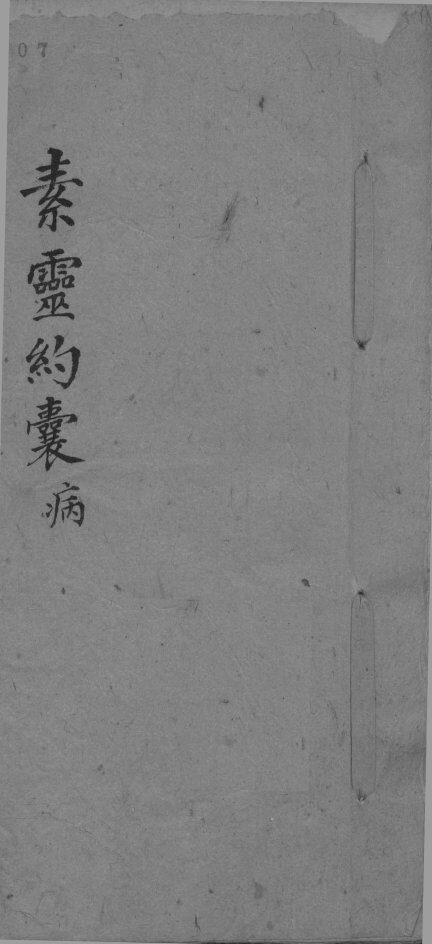 07
素靈約囊病